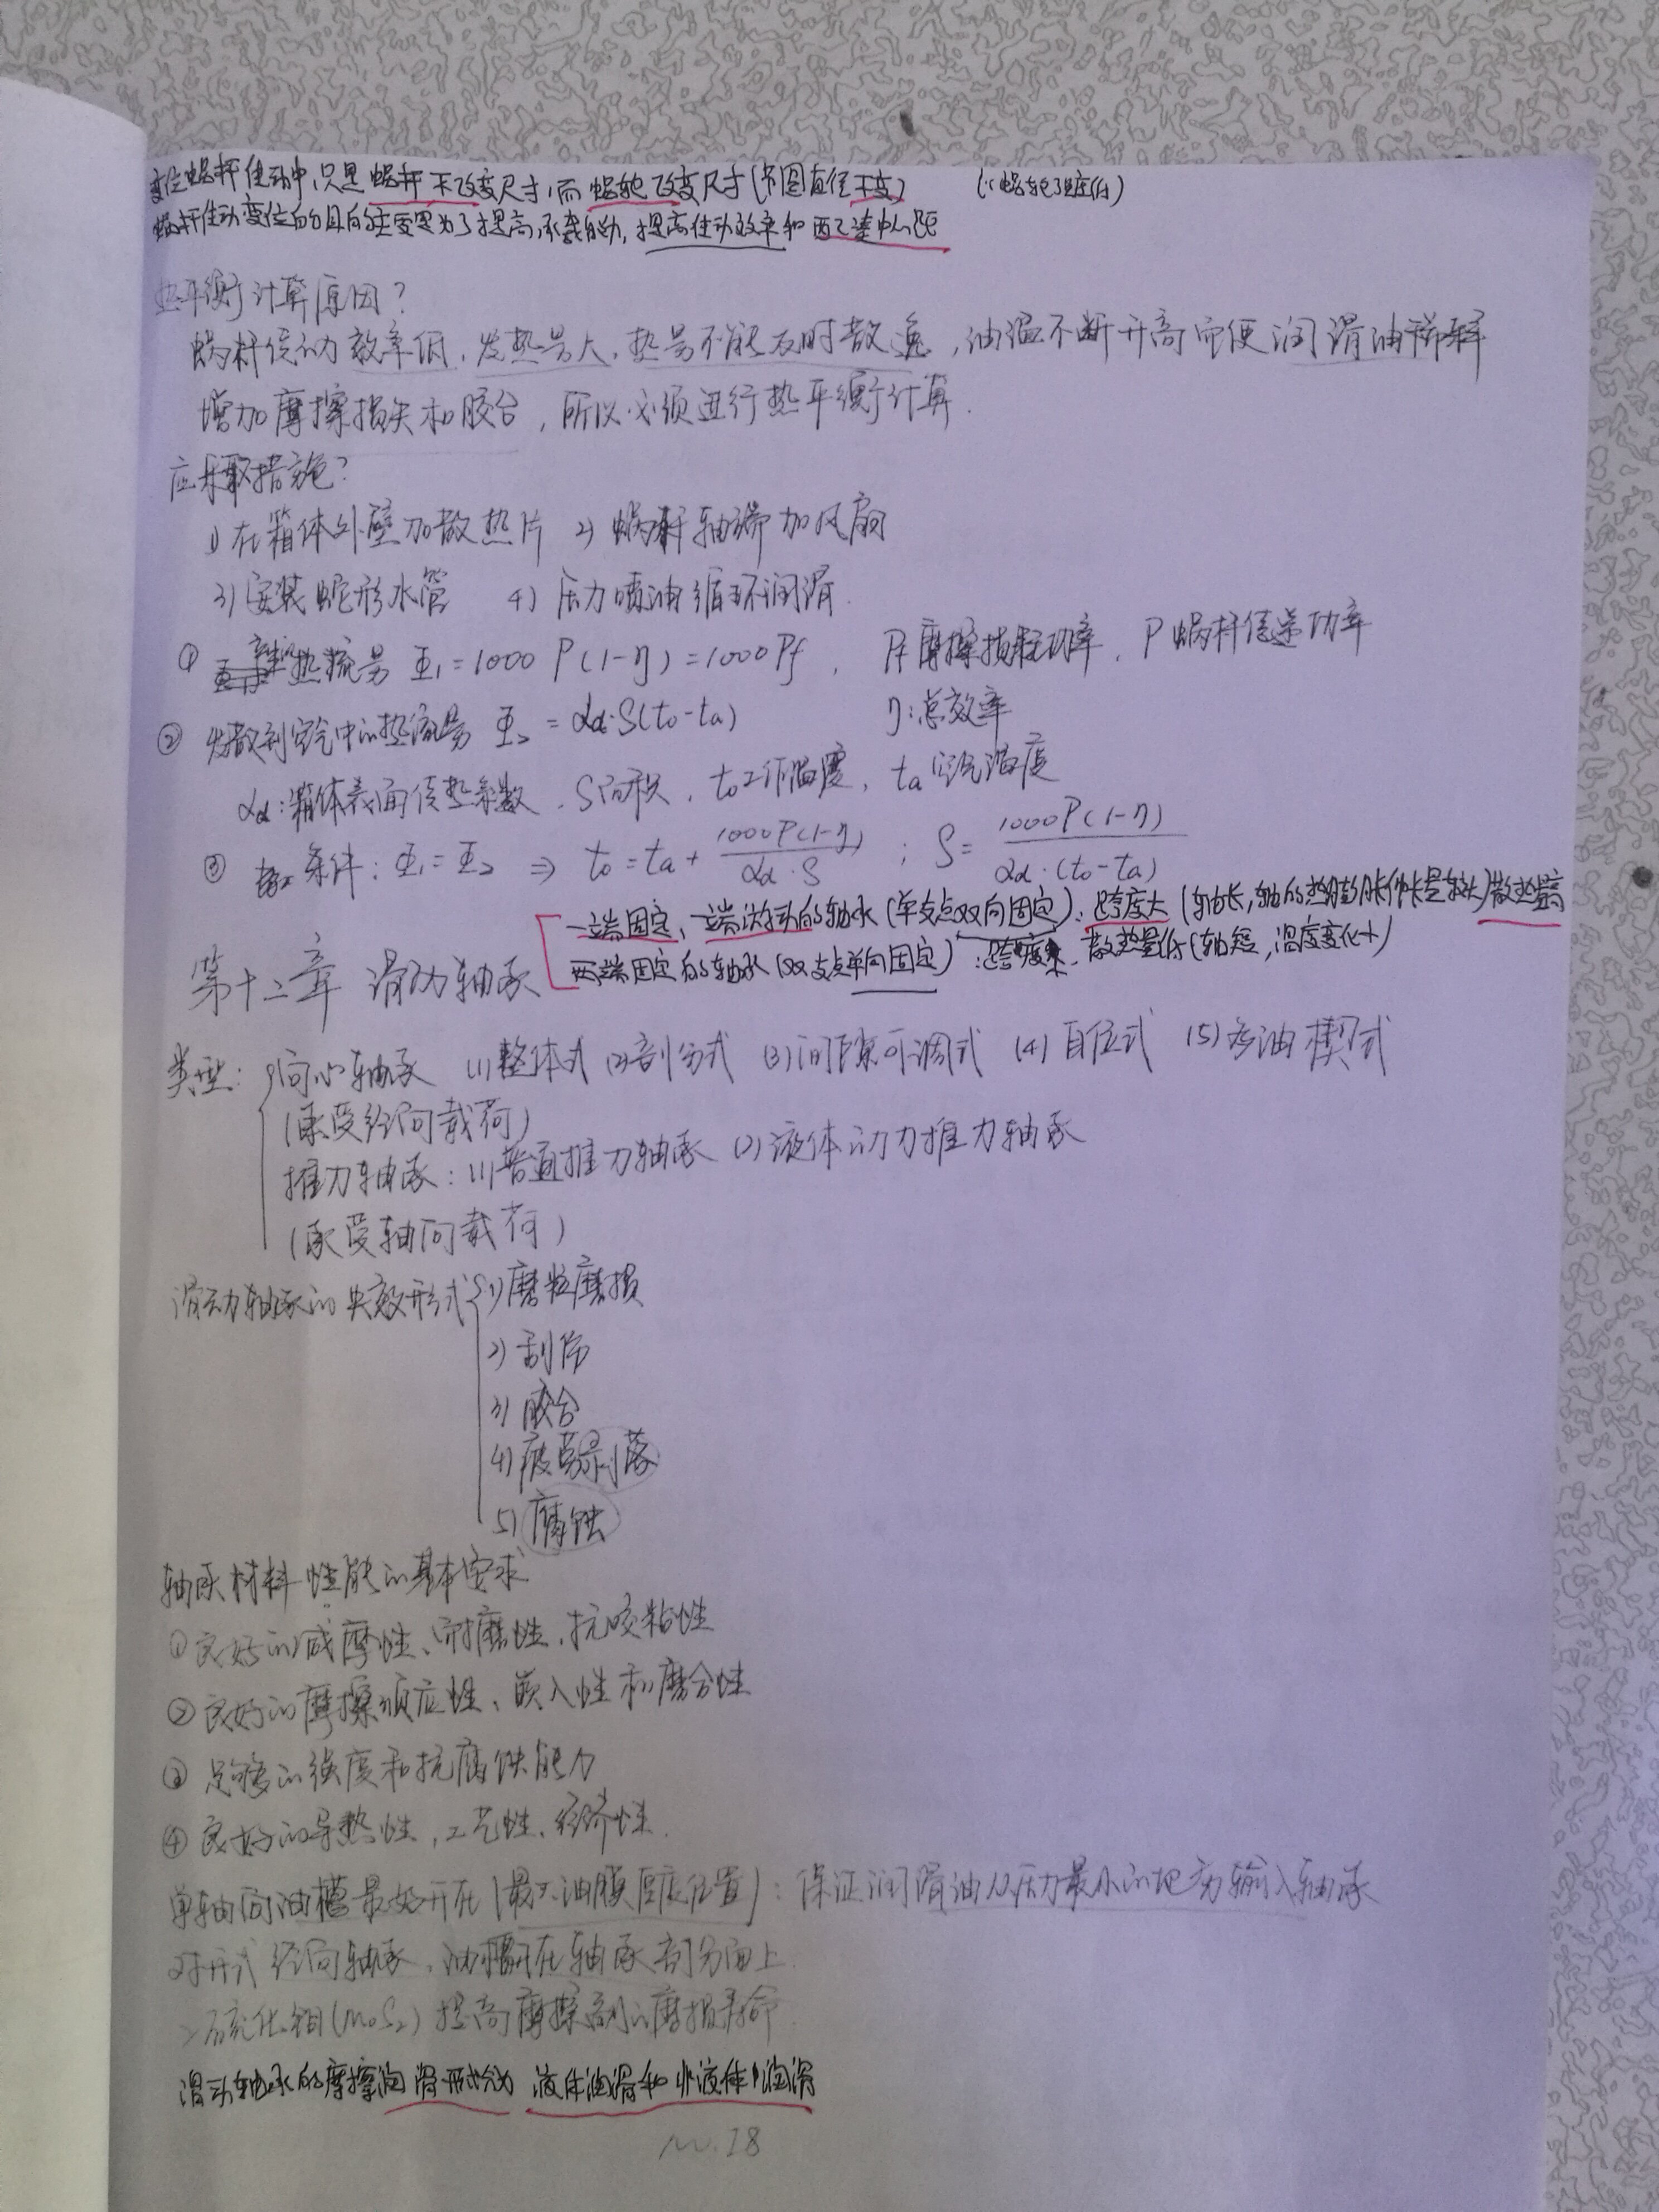 变位蜗杆传动中,只是蜗杆不改变尺寸,而蜗轮改变尺寸(节圆直径不变) (∵蜗轮强度低)
蜗杆传动变位的目的主要是为了提高承载能力,提高传动效率和西乙凑中心距
热平衡计算原因?
蜗杆传动效率低,发热量大,热量不能及时散逸,油温不断升高而使润滑油稀释
增加摩擦损失和胶合,所以必须进行热平衡计算.
应采取措施?
1)在箱体外壁加散热片 2)蜗杆轴端加风扇
3)安装蛇形水管 4)压力喷油循环润滑.
① 热流量 Φ₁=1000P(1-η)=1000Pf, Pf摩擦损耗功率,P蜗杆传递功率
② 发散到空气中的热流量 Φ₂=αd·S(t₀-ta) η:总效率
αd:箱体表面传热系数,S面积,t₀工作温度,ta 空气温度
③ 条件:Φ₁=Φ₂ ⇒ t₀=ta+1000P(1-η)/αd·S ; S=1000P(1-η)/αd·(t₀-ta)
一端固定、一端游动的轴承(单支点双向固定):跨度大(轴长,轴的热膨胀伸长量较大)散热量高
两端固定的轴承(双支点单向固定):跨度,散热量低(轴短,温度变化小)
第十二章 滑动轴承
类型: 向心轴承 (1)整体式 (2)剖分式 (3)间隙可调式 (4)自位式 (5)多油楔式
(承受径向载荷)
推力轴承:(1)普通推力轴承 (2)液体动力推力轴承
(承受轴向载荷)
滑动轴承的失效形式 1)磨粒磨损
2)刮伤
3)胶合
4)疲劳剥落
5)腐蚀
轴承材料性能的基本要求
①良好的减摩性、耐磨性,抗咬粘性
②良好的摩擦顺应性、嵌入性和磨合性
③足够的强度和抗腐蚀能力
④良好的导热性,工艺性、经济性.
单轴向油槽最好开在(最大油膜厚度位置):保证润滑油从压力最小的地方输入轴承
对开式径向轴承,油槽开在轴承剖分面上.
二硫化钼(MoS₂)提高摩擦副的磨损寿命.
滑动轴承的摩擦润滑形式分为 液体润滑和非液体润滑
No.18